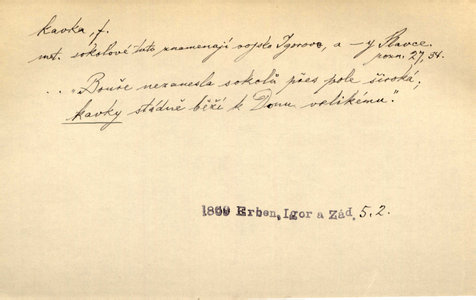 kavka, f.
met. sokolové tuto znamenají vojsko Igorovo, a -y Slavce.
pozn. 27, 34.
.. „Bouře nezanesla sokolů přes pole široké;
kavky stádně běží k Donu velikému."
1869 Erben, Igor a Zád. 5.2.